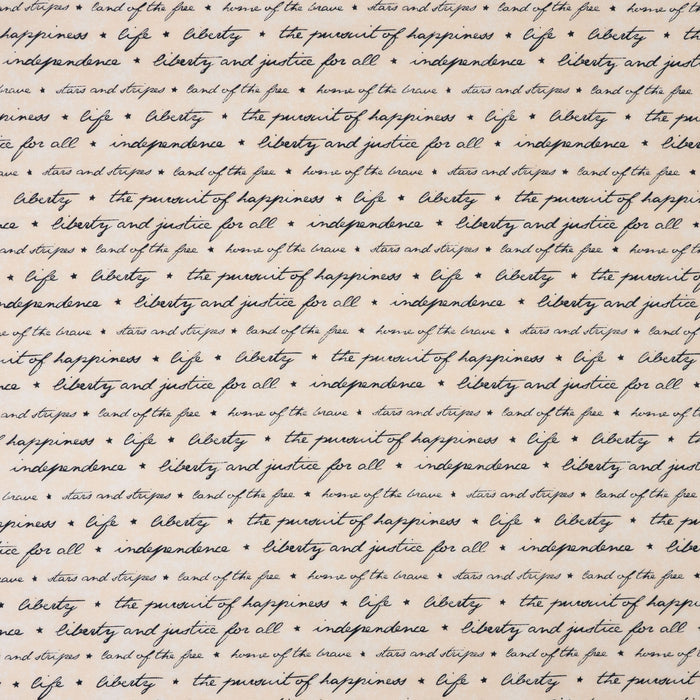 and stripes * land of the free * home of the brave * stars and stripes * land of the free * home of the
happiness * life * liberty * the pursuit of happiness * life * liberty * th
independence * liberty and justice for all * independence * liberty and just
brave * stars and stripes * land of the free * home of the brave * stars and stripes * land of the free
piness * life * liberty * the pursuit of happiness * life * liberty * the pu
ice for all * independence * liberty and justice for all * independence * liber
ave * stars and stripes * land of the free * home of the brave * stars and stripes * land of the free *
liberty * the pursuit of happiness * life * liberty * the pursuit of happin
ce * liberty and justice for all * independence * liberty and justice for all *
and stripes * land of the free * home of the brave * stars and stripes * land of the free * home of th
* life * liberty * the pursuit of happiness * life * liberty * the pursuit o
ndependence * liberty and justice for all * independence * liberty and justice
e of the brave * stars and stripes * land of the free * home of the brave * stars and stripes * land of
uit of happiness * life * liberty * the pursuit of happiness * life * liberty
ce * liberty and justice for all * independence * liberty and justice for all
and stripes * land of the free * home of the brave * stars and stripes * land of the free * home of th
happiness * life * liberty * the pursuit of happiness * life * liberty * th
independence * liberty and justice for all * independence * liberty and just
brave * stars and stripes * land of the free * home of the brave * stars and stripes * land of the free
ppiness * life * liberty * the pursuit of happiness * life * liberty * the p
ice for all * independence * liberty and justice for all * independence * liber
ave * stars and stripes * land of the free * home of the brave * stars and stripes * land of the free
* liberty * the pursuit of happiness * life * liberty * the pursuit of happi
nce * liberty and justice for all * independence * liberty and justice for all *
and stripes * land of the free * home of the brave * stars and stripes * land of the free * home of th
* life * liberty * the pursuit of happiness * life * liberty * the pursuit